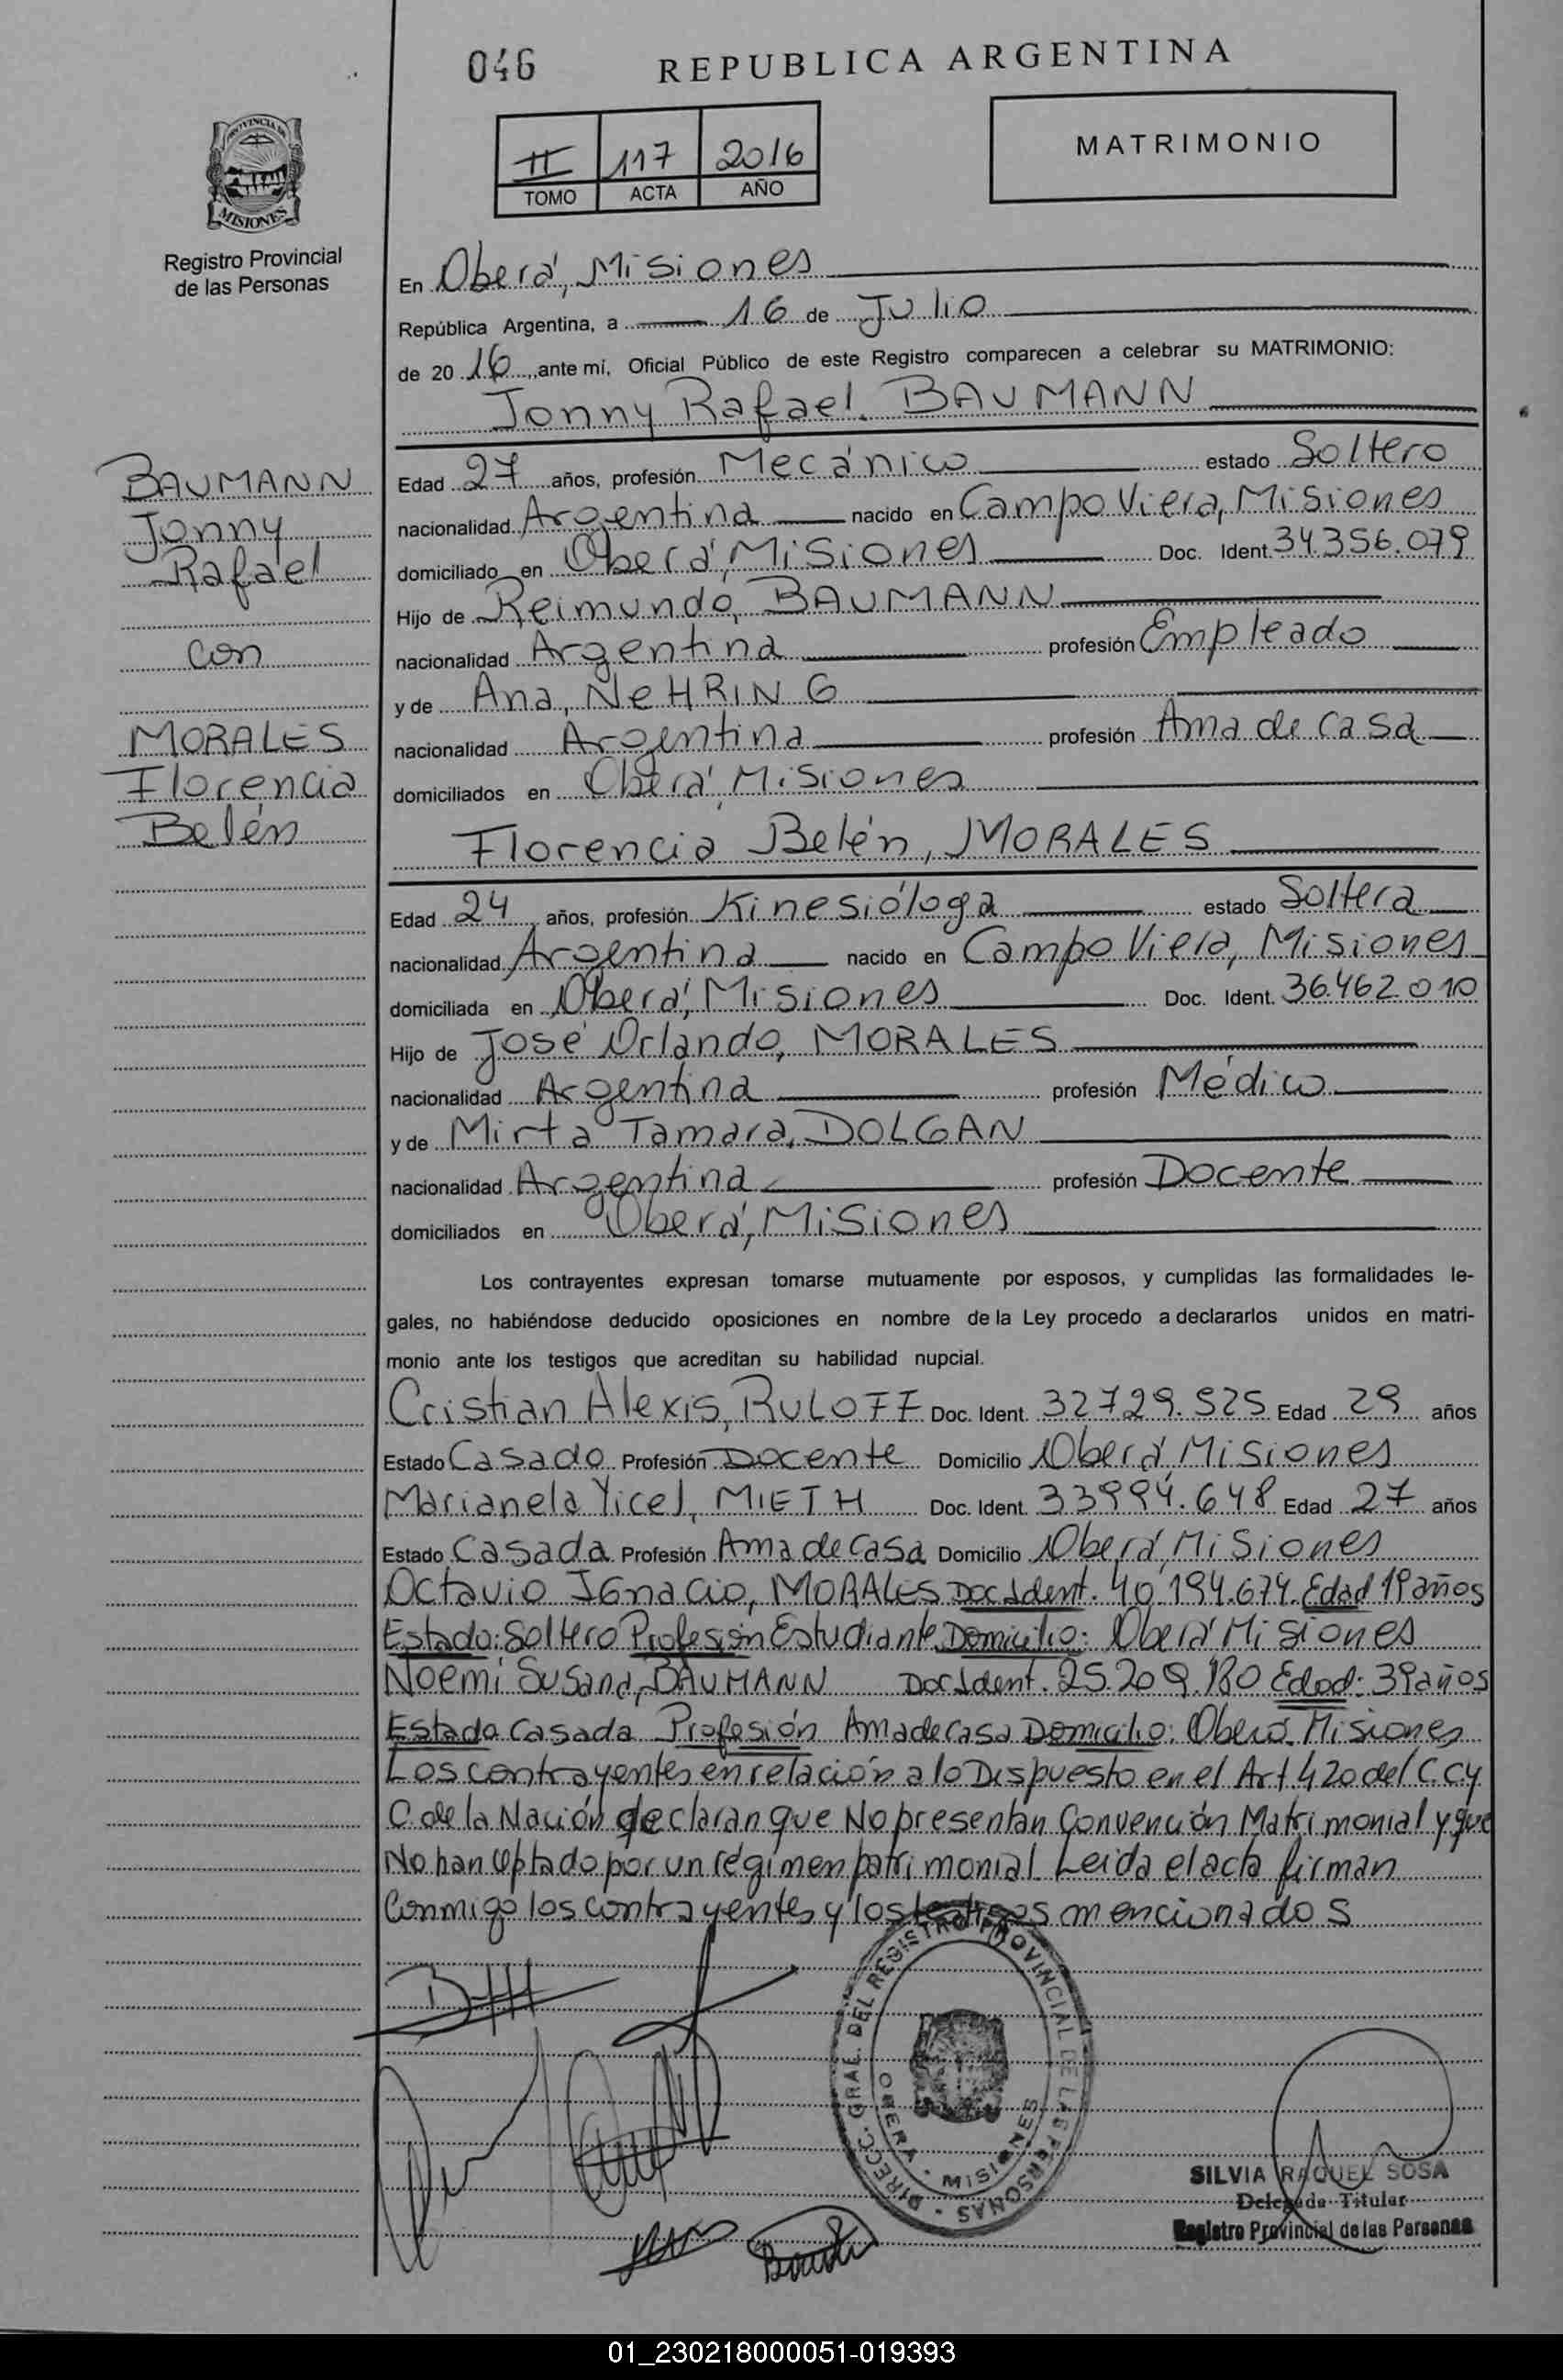 046 REPUBLICA ARGENTINA
PROVINCIA DE
MISIONES
II 117 2016
TOMO ACTA AÑO
MATRIMONIO
Registro Provincial
de las Personas
En Oberá, Misiones
República Argentina, a 16 de Julio
de 20 16, ante mí, Oficial Público de este Registro comparecen a celebrar su MATRIMONIO:
Jonny Rafael, BAUMANN
BAUMANN
Jonny
Rafael
con
MORALES
Florencia
Belén
Edad 27 años, profesión Mecánico estado Soltero
nacionalidad Argentina nacido en Campo Viera, Misiones
domiciliado en Oberá, Misiones Doc. Ident. 34356.079
Hijo de Reimundo, BAUMANN
nacionalidad Argentina profesión Empleado
y de Ana, NeHRING
nacionalidad Argentina profesión Ama de casa
domiciliados en Oberá, Misiones
Florencia Belén, MORALES
Edad 24 años, profesión Kinesióloga estado Soltera
nacionalidad Argentina nacido en Campo Viera, Misiones
domiciliada en Oberá, Misiones Doc. Ident. 36.462.010
Hijo de José Orlando, MORALES
nacionalidad Argentina profesión Médico
y de Mirta Tamara, DOLGAN
nacionalidad Argentina profesión Docente
domiciliados en Oberá, Misiones
Los contrayentes expresan tomarse mutuamente por esposos, y cumplidas las formalidades le-
gales, no habiéndose deducido oposiciones en nombre de la Ley procedo a declararlos unidos en matri-
monio ante los testigos que acreditan su habilidad nupcial.
Cristian Alexis, RULOFF Doc. Ident. 32729.525 Edad 29 años
Estado Casado Profesión Docente Domicilio Oberá, Misiones
Marianela Yicel, MIETH Doc. Ident. 33994.648 Edad 27 años
Estado Casada Profesión Ama de casa Domicilio Oberá, Misiones
Octavio IGnacio, MORALES Doc Ident. 40.194.674. Edad 19 años
Estado: Soltero Profesión Estudiante Domicilio: Oberá Misiones
Noemi Susana, BAUMANN Doc Ident. 25.209.180 Edad: 39 años
Estado Casada Profesión Ama de casa Domicilio: Oberá, Misiones
Los contrayentes en relación a lo Dispuesto en el Art 420 del C.C y
C. de la Nación declaran que No presentan Convención Matrimonial y que
No han optado por un régimen patrimonial Leida el acta firman
Conmigo los contrayentes y los testigos mencionados
DIRECC. GRAL. DEL REGISTRO PROVINCIAL DE LAS PERSONAS
OBERA - MISIONES
SILVIA RAQUEL SOSA
Delegada Titular
Registro Provincial de las Personas
01_230218000051-019393